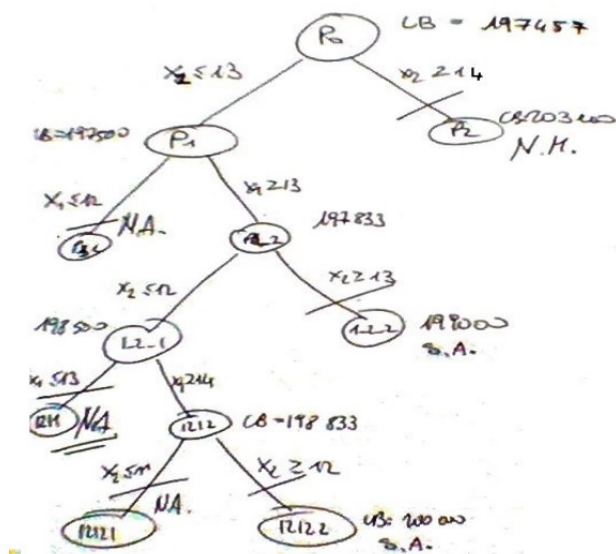 P0 LB = 197457
x2 ≤ 13 x2 ≥ 14
LB=197500 P1 P2 LB=203400
N.M.
x1 ≤ 12 N.A. x1 ≥ 13
197833
x2 ≤ 12 x2 ≥ 13
198500 1.2-1 1-2-2 199000
S.A.
x1 ≤ 13 x1 ≥ 14
NA 1212 LB = 198833
x2 ≤ 11 NA. x2 ≥ 12
12121 12122 LB= 200000
S.A.